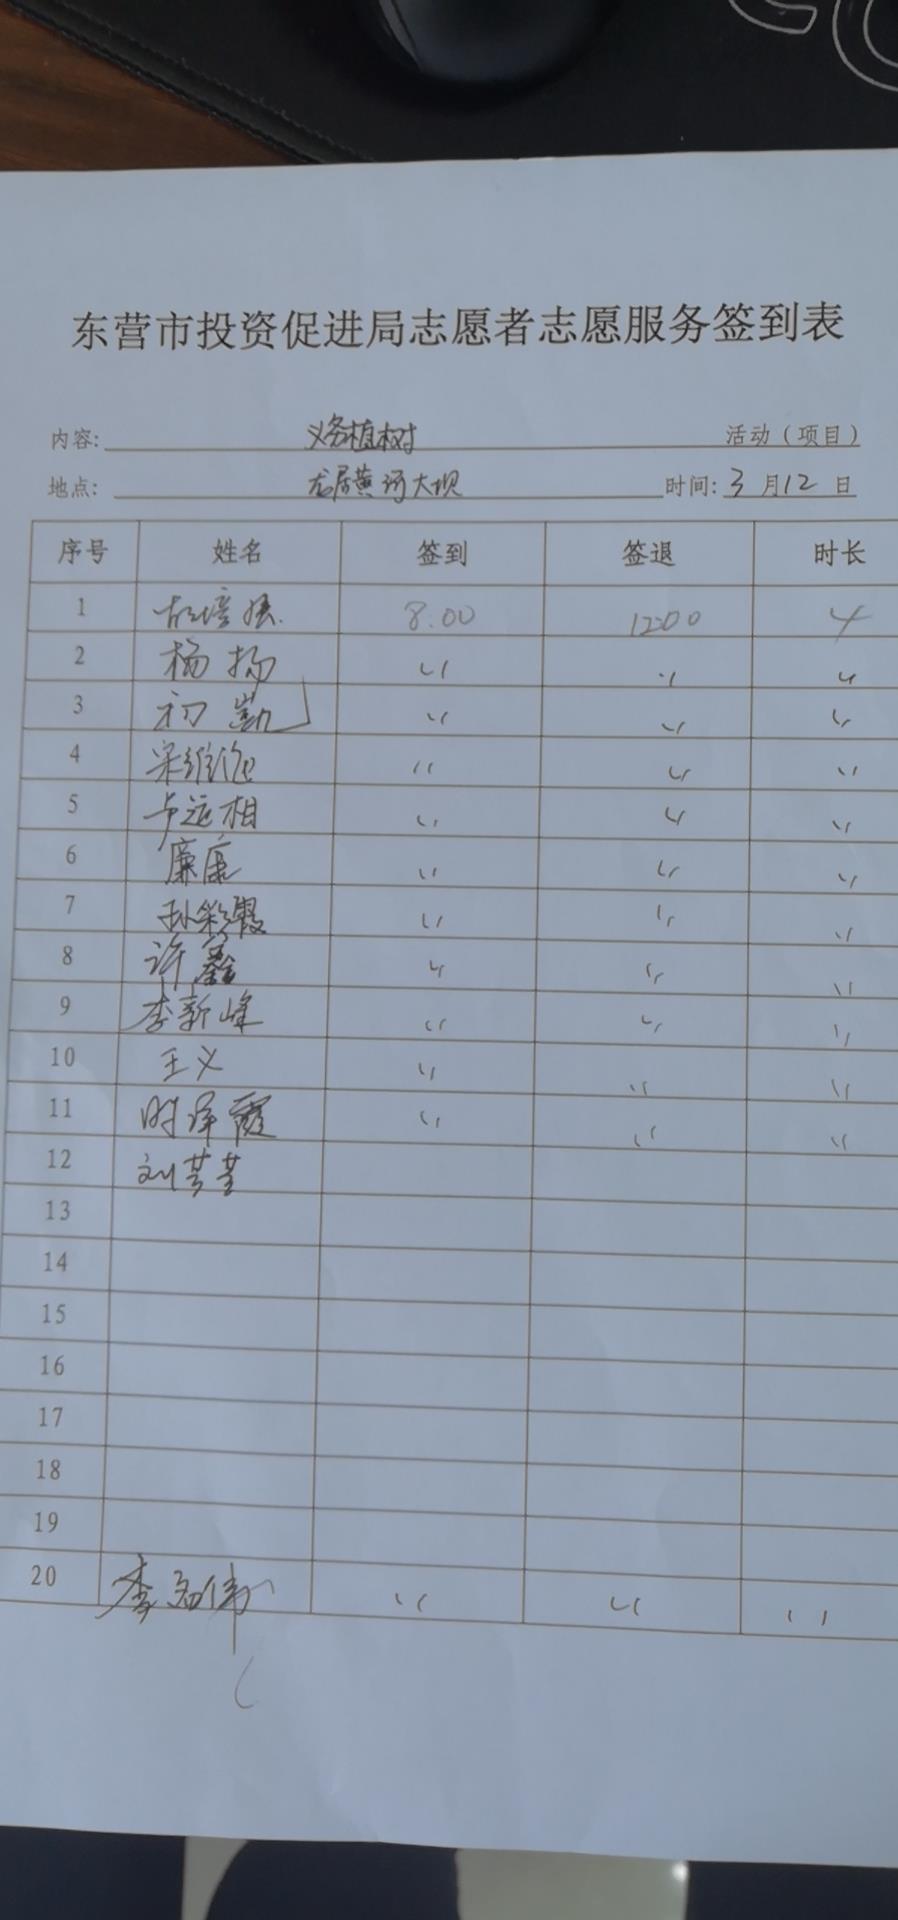 东营市投资促进局志愿者志愿服务签到表
内容: 义务植树 活动（项目）
地点: 龙居黄河大坝 时间: 3 月 12 日
序号 姓名 签到 签退 时长
1 8:00 12:00 4
2 杨扬 〃 〃 〃
3 初凯 〃 〃 〃
4 〃 〃 〃
5 卢运相 〃 〃 〃
6 廉康 〃 〃 〃
7 孙彩霞 〃 〃 〃
8 许鑫 〃 〃 〃
9 李新峰 〃 〃 〃
10 王义 〃 〃 〃
11 时泽霞 〃 〃 〃
12
13
14
15
16
17
18
19
20 〃 〃 〃